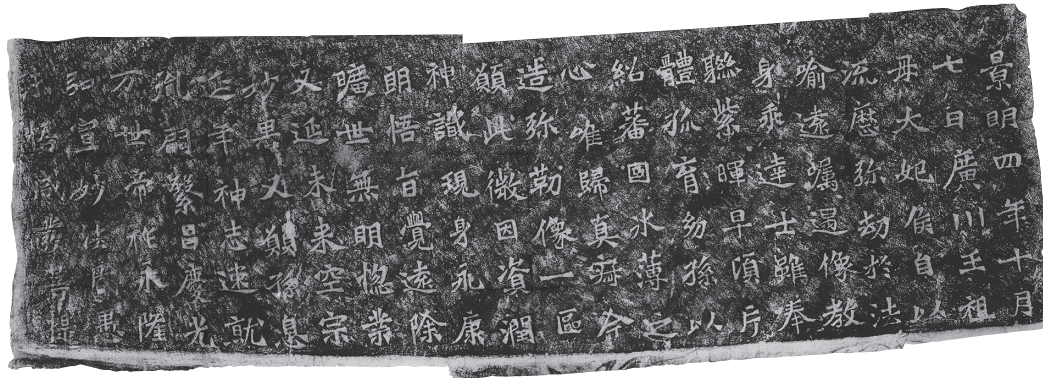 景明四年十月
七日廣川王祖
母大妃侯自以
流歷弥劫於法
喻遠囑遇像教
身乘達士雖奉
聯紫暉早頃片
體孤育幼孫以
紹蕃國氷薄之
心唯歸真寂今
造弥勒像一區
願此微因資潤
神識現身永康
朗悟旨覺遠除
曠世無明惚業
又延未来空宗
妙果又願孫息
延年神志速就
胤嗣繁昌慶光
万世帝祚永隆
弘宣妙法昏愚
未悟咸發菩提